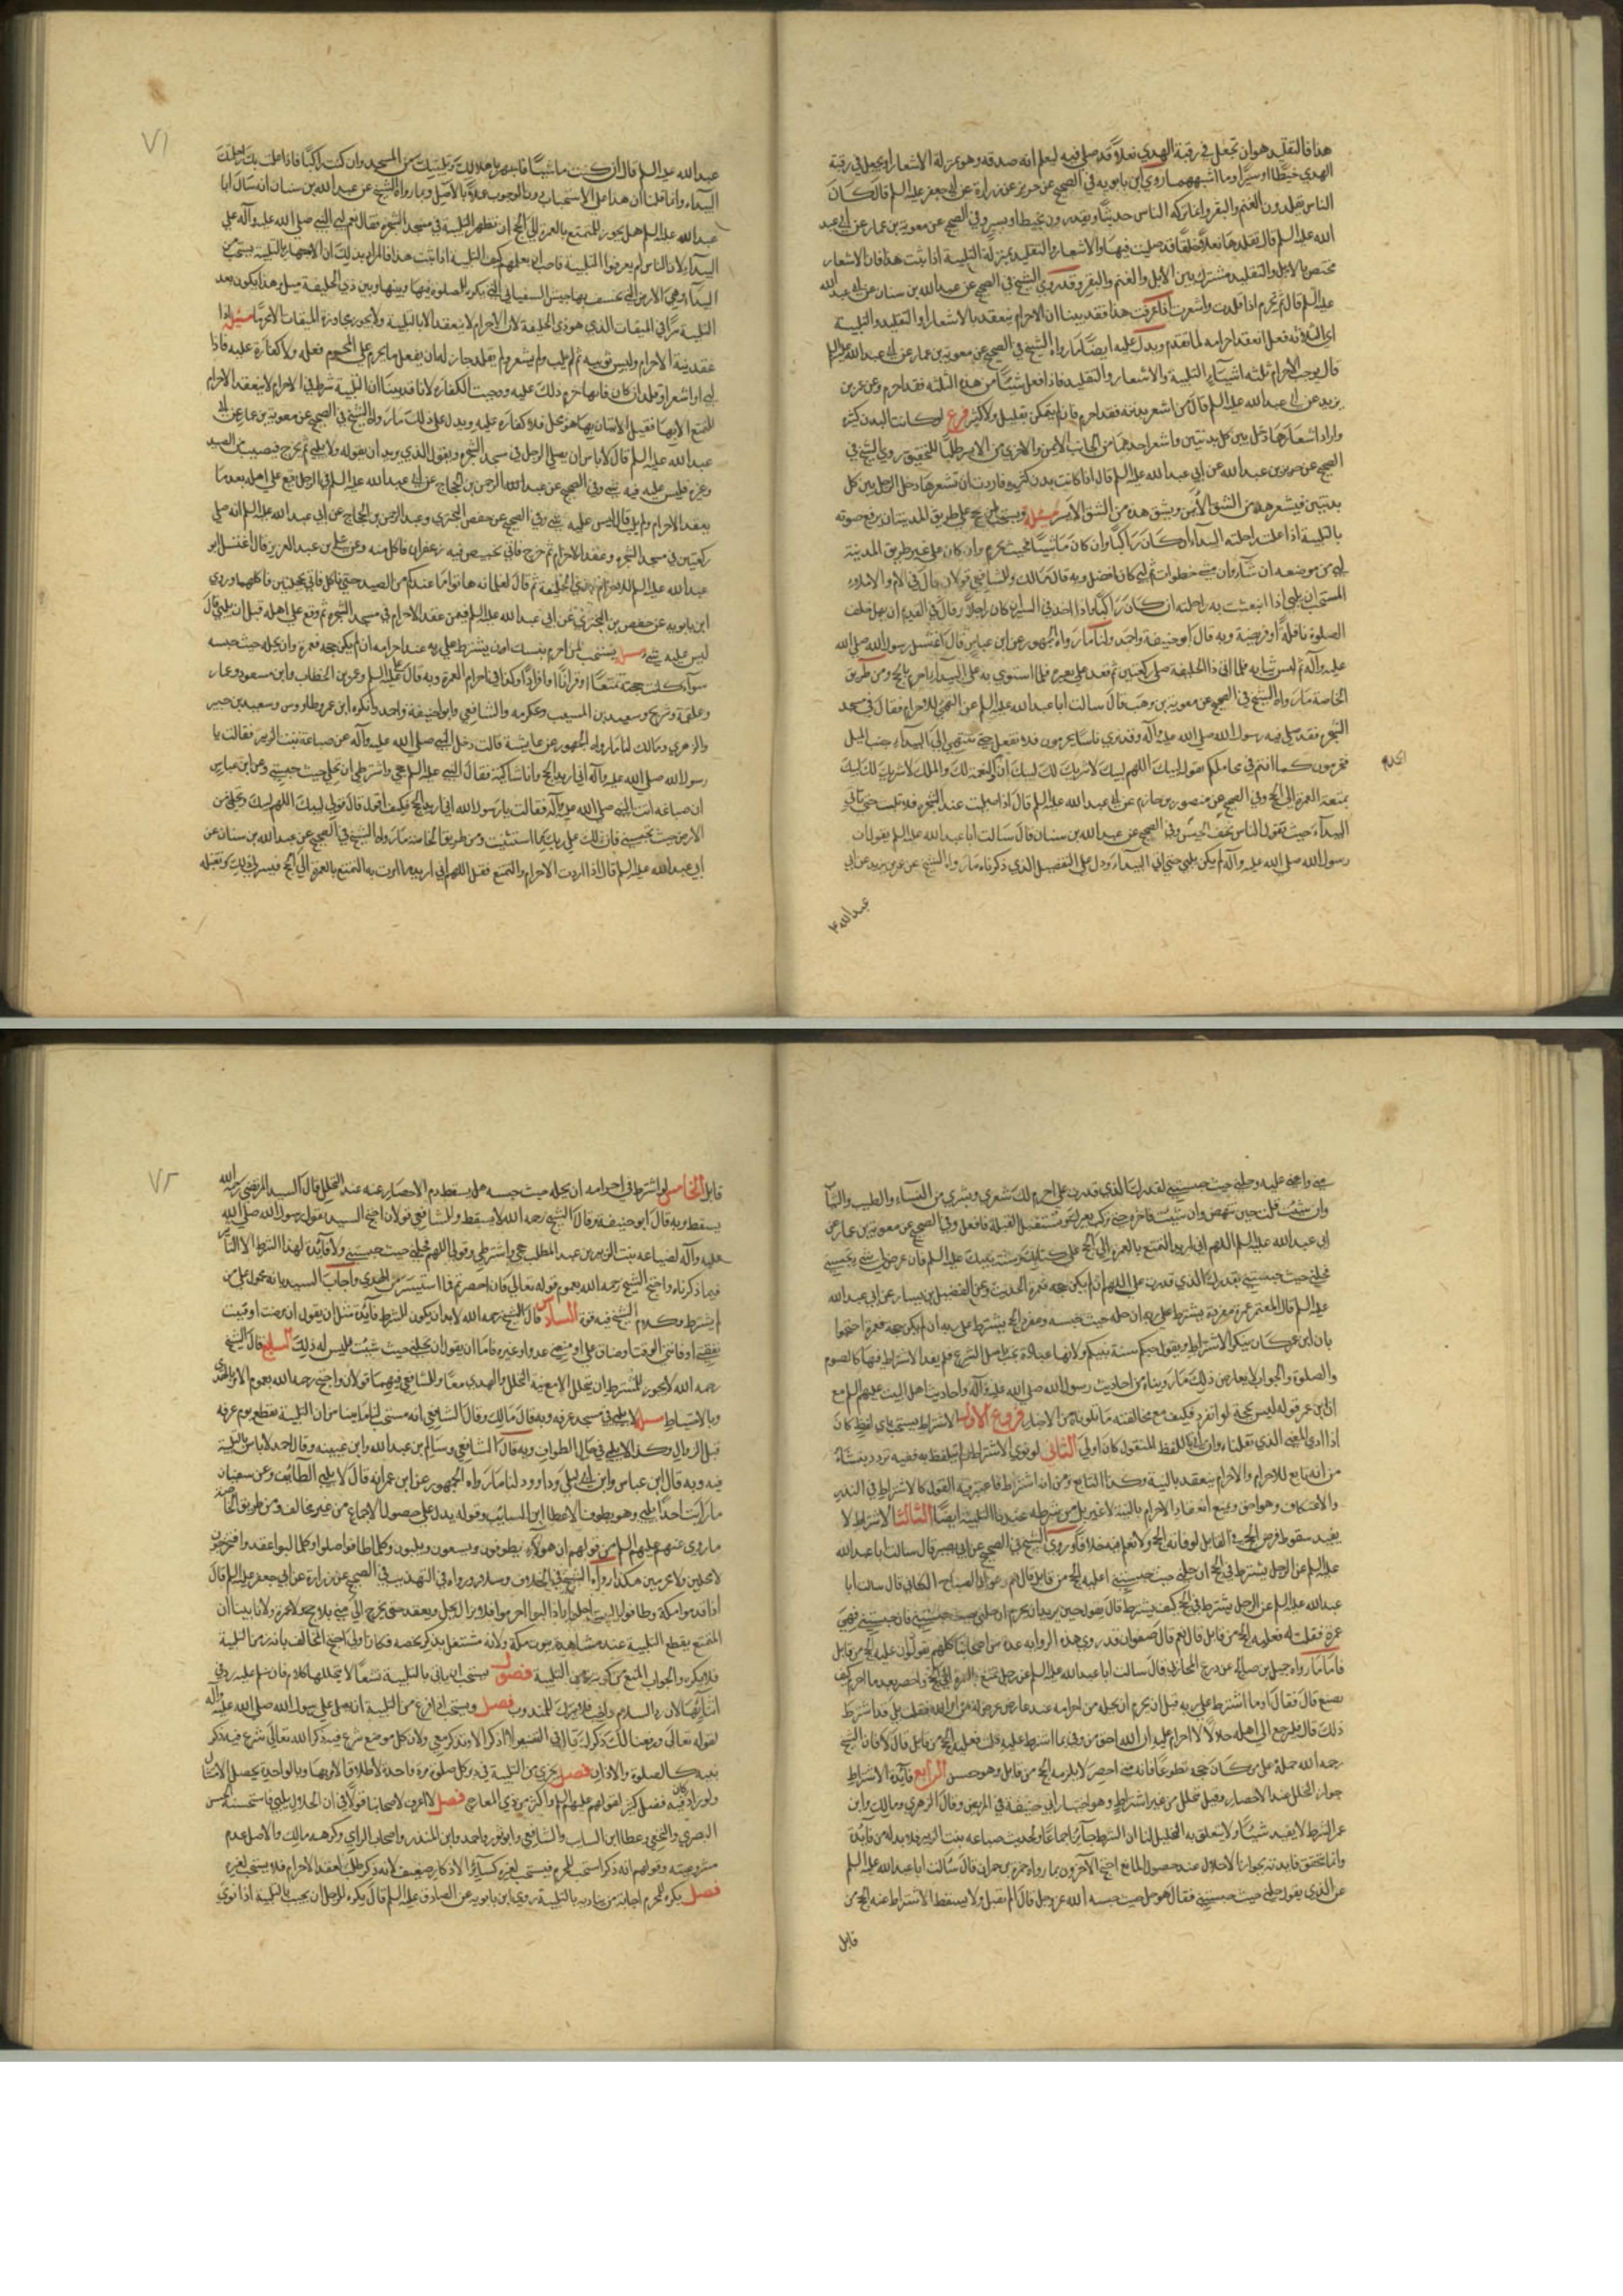 هذا فالتقليد هو ان يجعل في رقبة الهدي نعلاً قد صلى فيه ليعلم انه صدقه وهو بمنزلة الاشعار او يجعل في رقبة
الهدي خيطًا او سيرًا وما اشبههما روى ابن بابويه في الصحيح عن حريز عن زرارة عن ابي جعفر عليه السلم قال كان
الناس يقلدون الغنم والبقر وانما تركه الناس حديثًا ويقلدون بخيط او بسير وفي الصحيح عن معوية بن عمار عن ابي عبد
الله عليه السلم قال يقلدها نعلاً خلقًا قد صليت فيها والاشعار والتقليد بمنزلة التلبية اذا ثبت هذا فان الاشعار
مختص بالابل والتقليد مشترك بين الابل والغنم والبقر وقد روى الشيخ في الصحيح عن عبد الله بن سنان عن ابي عبد الله
عليه السلم قال
هذا فقد بينا ان الاحرام ينعقد بالاشعار او التقليد والتلبية
اي الثلاثة فعل انعقد احرامه لما تقدم ويدل عليه ايضًا ما رواه الشيخ في الصحيح عن معوية بن عمار عن ابي عبد الله عليه السلم
قال يوجب الاحرام ثلثه اشياء التلبية والاشعار والتقليد فاذا فعل شيئًا من هذه الثلثه فقد احرم وعن عمر بن
يزيد عن ابي عبد الله عليه السلم قال من اشعر بدنته فقد احرم وان لم يتكلم بقليل ولا كثير فرع لو كانت البدن كثيرة
واراد اشعارها دخل بين كل بدنتين واشعر احدهما من الجانب الايمن والاخرى من الايسر طلبًا للتخفيف روى الشيخ في
الصحيح عن حريز بن عبد الله عن ابي عبد الله عليه السلم قال اذا كانت بدن كثيرة فاردت ان تشعرها دخل الرجل بين كل
بدنتين فيشعر هذه من الشق الايمن ويشق هذه من الشق الايسر مسئلة ويستحب لمن حج على طريق المدينة ان يرفع صوته
بالتلبية اذا علت راحلته البيداء ان كان راكبًا وان كان ماشيًا فحيث يحرم وان كان على غير طريق المدينة
لبى من موضعه ان شاء وان مشى خطوات ثم لبى كان افضل وبه قال مالك وللشافعي قولان قال في الام والاملاء
المستحب ان يلبي اذا انبعثت به راحلته ان كان راكبًا واذا اخذ في السير ان كان راجلاً وقال في القديم ان يهل خلف
الصلوة نافلةً او فريضة وبه قال ابو حنيفة واحمد لنا ما رواه الجمهور عن ابن عباس قال اغتسل رسول الله صلى الله
عليه وآله ثم لبس ثيابه فلما اتى ذا الحليفة صلى ركعتين ثم قعد على بعيره فلما استوى به على البيداء احرم بالحج ومن طريق
الخاصة ما رواه الشيخ في الصحيح عن معوية بن وهب قال سالت ابا عبد الله عليه السلم عن التهيّ للاحرام فقال في مسجد
الشجرة فقد صلى فيه رسول الله صلى الله عليه وآله وقد ترى ناسًا يحرمون فلا تفعل حتى تنتهي الى البيداء حيث الميل
فتحرمون كما انتم في محاملكم تقول لبيك اللهم لبيك لا شريك لك لبيك ان الحمد والنعمة لك والملك لا شريك لك لبيك
بمتعة العمرة الى الحج وفي الصحيح عن منصور بن حازم عن ابي عبد الله عليه السلم قال اذا صليت عند الشجرة فلا تلب حتى تاتي
البيداء حيث يقول الناس يخسف الجيش وفي الصحيح عن عبد الله بن سنان قال سالت ابا عبد الله عليه السلم يقول ان
رسول الله صلى الله عليه وآله لم يكن يلبي حتى ياتي البيداء ودل على التفصيل الذي ذكرناه ما رواه الشيخ عن عمر بن يزيد عن ابي
عبد الله
٧١
عبد الله عليه السلم قال ان كنت ماشيًا فاجهر باهلالك وتلبيتك من المسجد وان كنت راكبًا فاذا علت بك راحلتك
البيداء وانما قلنا ان هذا على الاستحباب دون الوجوب عملاً بالاصل وبما رواه الشيخ عن عبد الله بن سنان انه سال ابا
عبد الله عليه السلم هل يجوز للمتمتع بالعمرة الى الحج ان يظهر التلبية في مسجد الشجرة فقال نعم انما لبى النبي صلى الله عليه وآله على
البيداء لان الناس لم يعرفوا التلبية فاحب ان يعلمهم كيف التلبية اذا ثبت هذا فالمراد بذلك ان الاجهار بالتلبية يستحب من
البيداء وهي الارض التي يخسف بها جيش السفياني التي يكره الصلوة فيها وبينها وبين ذي الحليفة ميل وهذا يكون بعد
التلبية سرًا في الميقات الذي هو ذي الحليفة لان الاحرام لا ينعقد الا بالتلبية ولا يجوز مجاوزة الميقات الا محرمًا مسئلة اذا
عقد نية الاحرام ولبس ثوبيه ثم لم يلب ولم يشعر ولم يقلد جاز له ان يفعل ما يحرم على المحرم فعله ولا كفارة عليه فاذا
لبى او اشعر او قلد ان كان قارنا حرم ذلك عليه ووجبت الكفارة لانا قد بينا ان التلبية شرط في الاحرام لا ينعقد الاحرام
للمتمتع الا بها فقبل الاتيان بها هو محل فلا كفارة عليه ويدل على ذلك ما رواه الشيخ في الصحيح عن معوية بن عمار عن ابي
عبد الله عليه السلم قال لا باس ان يصلي الرجل في مسجد الشجرة ويقول الذي يريد ان يقوله ولا يلبي ثم يخرج فيصيب من الصيد
وغيره فليس عليه فيه شيء وفي الصحيح عن عبد الرحمن بن الحجاج عن ابي عبد الله عليه السلم في الرجل يقع على اهله بعد ما
يعقد الاحرام ولم يلب قال ليس عليه شيء وفي الصحيح عن حفص بن البختري وعبد الرحمن بن الحجاج عن ابي عبد الله عليه السلم انه صلى
ركعتين في مسجد الشجرة وعقد الاحرام ثم خرج فاتي بخبيص فيه زعفران فاكل منه وعن علي بن عبد العزيز قال اغتسل ابو
عبد الله عليه السلم للاحرام بذي الحليفة ثم قال لغلمانه هاتوا ما عندكم من الصيد حتى ناكل فاتي بحجلتين فاكلهما وروى
ابن بابويه عن حفص بن البختري عن ابي عبد الله عليه السلم فيمن عقد الاحرام في مسجد الشجرة ثم وقع على اهله قبل ان يلبي قال
ليس عليه شيء مسئلة يستحب لمن احرم بنسك ان يشترط على ربه عند احرامه ان لم يكن حجة فعمرة وان يحله حيث حبسه
سواء كانت حجته تمتعًا او قرانًا او افرادًا وكذا في احرام العمرة وبه قال علي عليه السلم وعمر بن الخطاب وابن مسعود وعمار
وعلقمة وشريح وسعيد بن المسيب وعكرمه والشافعي وابو حنيفة واحمد وانكره ابن عمر وطاووس وسعيد بن جبير
والزهري ومالك لنا ما رواه الجمهور عن عايشة قالت دخل النبي صلى الله عليه وآله على ضباعة بنت الزبير فقالت يا
رسول الله صلى الله عليه وآله اني اريد الحج وانا شاكية فقال النبي عليه السلم حجي واشترطي ان تحلي حيث حبستني وعن ابن عباس
ان ضباعه اتت النبي صلى الله عليه وآله فقالت يا رسول الله اني اريد الحج فكيف اقول قال قولي لبيك اللهم لبيك ومحلي من
الارض حيث تحبسني فان لك على ربك ما استثنيت ومن طريق الخاصة ما رواه الشيخ في الصحيح عن عبد الله بن سنان عن
ابي عبد الله عليه السلم قال اذا اردت الاحرام والتمتع فقل اللهم اني اريد ما امرت به من التمتع بالعمرة الى الحج فيسر لي ذلك وتقبله
مني واعني عليه وحلني حيث حبستني لقدرك الذي قدرت علي احرم لك شعري وبشري من النساء والطيب والثياب
وان شئت قلت حين تنهض وان شئت فاخره حتى تركب بعيرك وتستقبل القبلة فافعل وفي الصحيح عن معوية بن عمار عن
ابي عبد الله عليه السلم اللهم اني اريد التمتع بالعمرة الى الحج على كتابك وسنة نبيك عليه السلم فان عرض لي شيء يحبسني
فحلني حيث حبستني بقدرك الذي قدرت علي اللهم ان لم يكن حجة فعمرة الحديث وعن الفضيل بن يسار عن ابي عبد الله
عليه السلم قال المعتمر عمرة مفردة يشترط على ربه ان يحله حيث حبسه ومفرد الحج يشترط على ربه ان لم يكن حجة فعمرة احتجوا
بان ابن عمر كان ينكر الاشتراط ويقول حسبكم سنة نبيكم ولانها عبادة تجب باصل الشرع فلم يفد الاشتراط فيها كالصوم
والصلوة والجواب لا يعارض ذلك ما رويناه من احاديث رسول الله صلى الله عليه وآله واحاديث اهل البيت عليهم السلم مع
ان ابن عمر قوله ليس بحجة لو انفرد فكيف مع مخالفته ما تلوناه من الاخبار فروع الاول الاشتراط يستحب باي لفظ كان
اذا ادى المعنى الذي نقلناه وان اتى باللفظ المنقول كان اولى الثاني لو نوى الاشتراط ولم يتلفظ به ففيه تردد ينشاء
من انه تابع للاحرام والاحرام ينعقد بالنية وكذا التابع ومن انه اشتراط فاعتبر فيه القول كالاشتراط في النذر
والاعتكاف وهو احق ويمنع انعقاد الاحرام بالنية لا غير بل من شرطه عندنا التلبية ايضًا الثالث الاشتراط لا
يفيد سقوط فرض الحج في القابل لو فاته الحج ولا نعلم فيه خلافًا روى الشيخ في الصحيح عن ابي بصير قال سالت ابا عبد الله
عليه السلم عن الرجل يشترط في الحج ان حلني حيث حبستني اعليه الحج من قابل قال نعم وعن ابي الصباح الكناني قال سالت ابا
عبد الله عليه السلم عن الرجل يشترط في الحج كيف يشترط قال يقول حين يريد ان يحرم ان حلني حيث حبستني فان حبستني فهي
عمرة فقلت له فعليه الحج من قابل قال نعم قال صفوان قد روى هذه الرواية عدة من اصحابنا كلهم يقولون ان عليه الحج من قابل
فاما ما رواه جميل بن صالح عن ذريح المحاربي قال سالت ابا عبد الله عليه السلم عن رجل تمتع بالعمرة الى الحج واحصر بعد ما احرم كيف
يصنع قال فقال او ما اشترط على ربه قبل ان يحرم ان يحله من احرامه عند عارض عرض له من امر الله فقلت بلى قد اشترط
ذلك قال فليرجع الى اهله حلالاً لا احرام عليه ان الله احق من وفى بما اشترط عليه قلت فعليه الحج من قابل قال لا فان الشيخ
رحمه الله حمله على من كان حجه تطوعًا فانه متى احصر لا يلزمه الحج من قابل وهو حسن الرابع فائدة الاشتراط
جواز التحلل عند الاحصار وقيل تتحلل من غير اشتراط وهو اختيار ابي حنيفة في المريض وقال الزهري ومالك وابن
عمر الشرط لا يفيد شيئًا ولا يتعلق به التحليل لنا ان الشرط جائز اجماعًا ولحديث ضباعه بنت الزبير فلا بد له من فائدة
وانما تتحقق فايدته بجواز الاحلال عند حصول المانع احتج الآخرون بما رواه حمزة بن حمران قال سالت ابا عبد الله عليه السلم
عن الذي يقول حلني حيث حبستني فقال هو حل حيث حبسه الله عز وجل قال او لم يقل ولا يسقط الاشتراط عنه الحج من
قابل
٧٢
قابل الخامس لو اشترط في احرامه ان يحله حيث حبسه هل يسقط دم الاحصار عنه عند التحلل قال السيد المرتضى رحمه الله
يسقط وبه قال ابو حنيفة وقال الشيخ رحمه الله لا يسقط وللشافعي قولان احتج السيد بقول رسول الله صلى الله
عليه وآله لضباعه بنت الزبير بن عبد المطلب حجي واشترطي وقولي اللهم فحلني حيث حبستني ولا فائدة لهذا الشرط الا التاثير
فيما ذكرناه واحتج الشيخ رحمه الله بعموم قوله تعالى فان احصرتم فما استيسر من الهدي واجاب السيد بانه محمول على من
لم يشترط وكلام الشيخ فيه قوة السادس قال الشيخ رحمه الله لا بد ان يكون للشرط فائدة مثل ان يقول ان مرضت او فنيت
نفقتي او فاتني الوقت او ضاق علي او منعني عدو او غيره فاما ان يقول ان تحلني حيث شئت فليس له ذلك السابع قال الشيخ
رحمه الله لا يجوز للمشترط ان يتحلل الا مع نية التحلل والهدي معًا وللشافعي فيهما قولان واحتج رحمه الله بعموم الامر بالهدي
وبالاحتياط مسئلة لا يلبي في مسجد عرفه وبه قال مالك وقال الشافعي انه مستحب لنا ما بينا من ان التلبية تقطع يوم عرفه
قبل الزوال وكذا لا يلبي في حال الطواف وبه قال الشافعي وسالم بن عبد الله وابن عيينه وقال احمد لا باس بالتلبية
فيه وبه قال ابن عباس وابن ابي ليلى وداوود لنا ما رواه الجمهور عن ابن عمر انه قال لا يلبي الطائف وعن سفيان
ما رايت احدًا يلبي وهو يطوف الا عطا بن السائب وقوله يدل على حصول الاجماع من غير مخالف ومن طريق الخاصة
ما روي عنهم عليهم السلم من قولهم ان هؤلاء يطوفون ويسعون ويلبون وكلما طافوا حلوا وكلما لبوا عقدوا فيخرجون
لا محلين ولا محرمين هكذا رواه الشيخ في الخلاف ورواه في التهذيب في الصحيح عن زرارة عن ابي جعفر عليه السلم قال
المتمتع يقطع التلبية عند مشاهدة بيوت مكة ولانه مشتغل بذكر يخصه فكان اولى احتج المخالف بانه زمن التلبية
فلا يكره والجواب المنع من كونه زمن التلبية فصول يستحب ان ياتي بالتلبية نسقًا لا يتخللها كلام فان سلم عليه رد في
اثنائها لان رد السلام واجب فلا يترك للمندوب فصل ويستحب اذا فرغ من التلبية ان يصلي على رسول الله صلى الله عليه وآله
لقوله تعالى ورفعنا لك ذكرك قال في التفسير لا اذكر الا وتذكر معي ولان كل موضع شرع فيه ذكر الله تعالى شرع فيه ذكر
نبيه كالصلوة والاذان فصل يجزي من التلبية في دبر كل صلوة مرة واحدة لاطلاق الامر بها وبالواحدة يحصل الامتثال
ولو زاد كان فيه فضل كثير لقولهم عليهم السلم واكثر من ذي المعارج فصل لا اعرف لاصحابنا قولاً في ان الحلال يلبي فاستحسنه الحسن
البصري والنخعي وعطا بن السايب والشافعي وابو ثور واحمد وابن المنذر واصحاب الراي وكرهه مالك والاصل عدم
مشروعيته وقولهم انه ذكر استحب للمحرم فيستحب لغيره كسائر الاذكار ضعيف لانه ذكر متعلق بعقد الاحرام فلا يستحب لغيره
فصل يكره للمحرم اجابة من يناديه بالتلبية روى ابن بابويه عن الصادق عليه السلم قال يكره للرجل ان يجيب بالتلبية اذا نودي